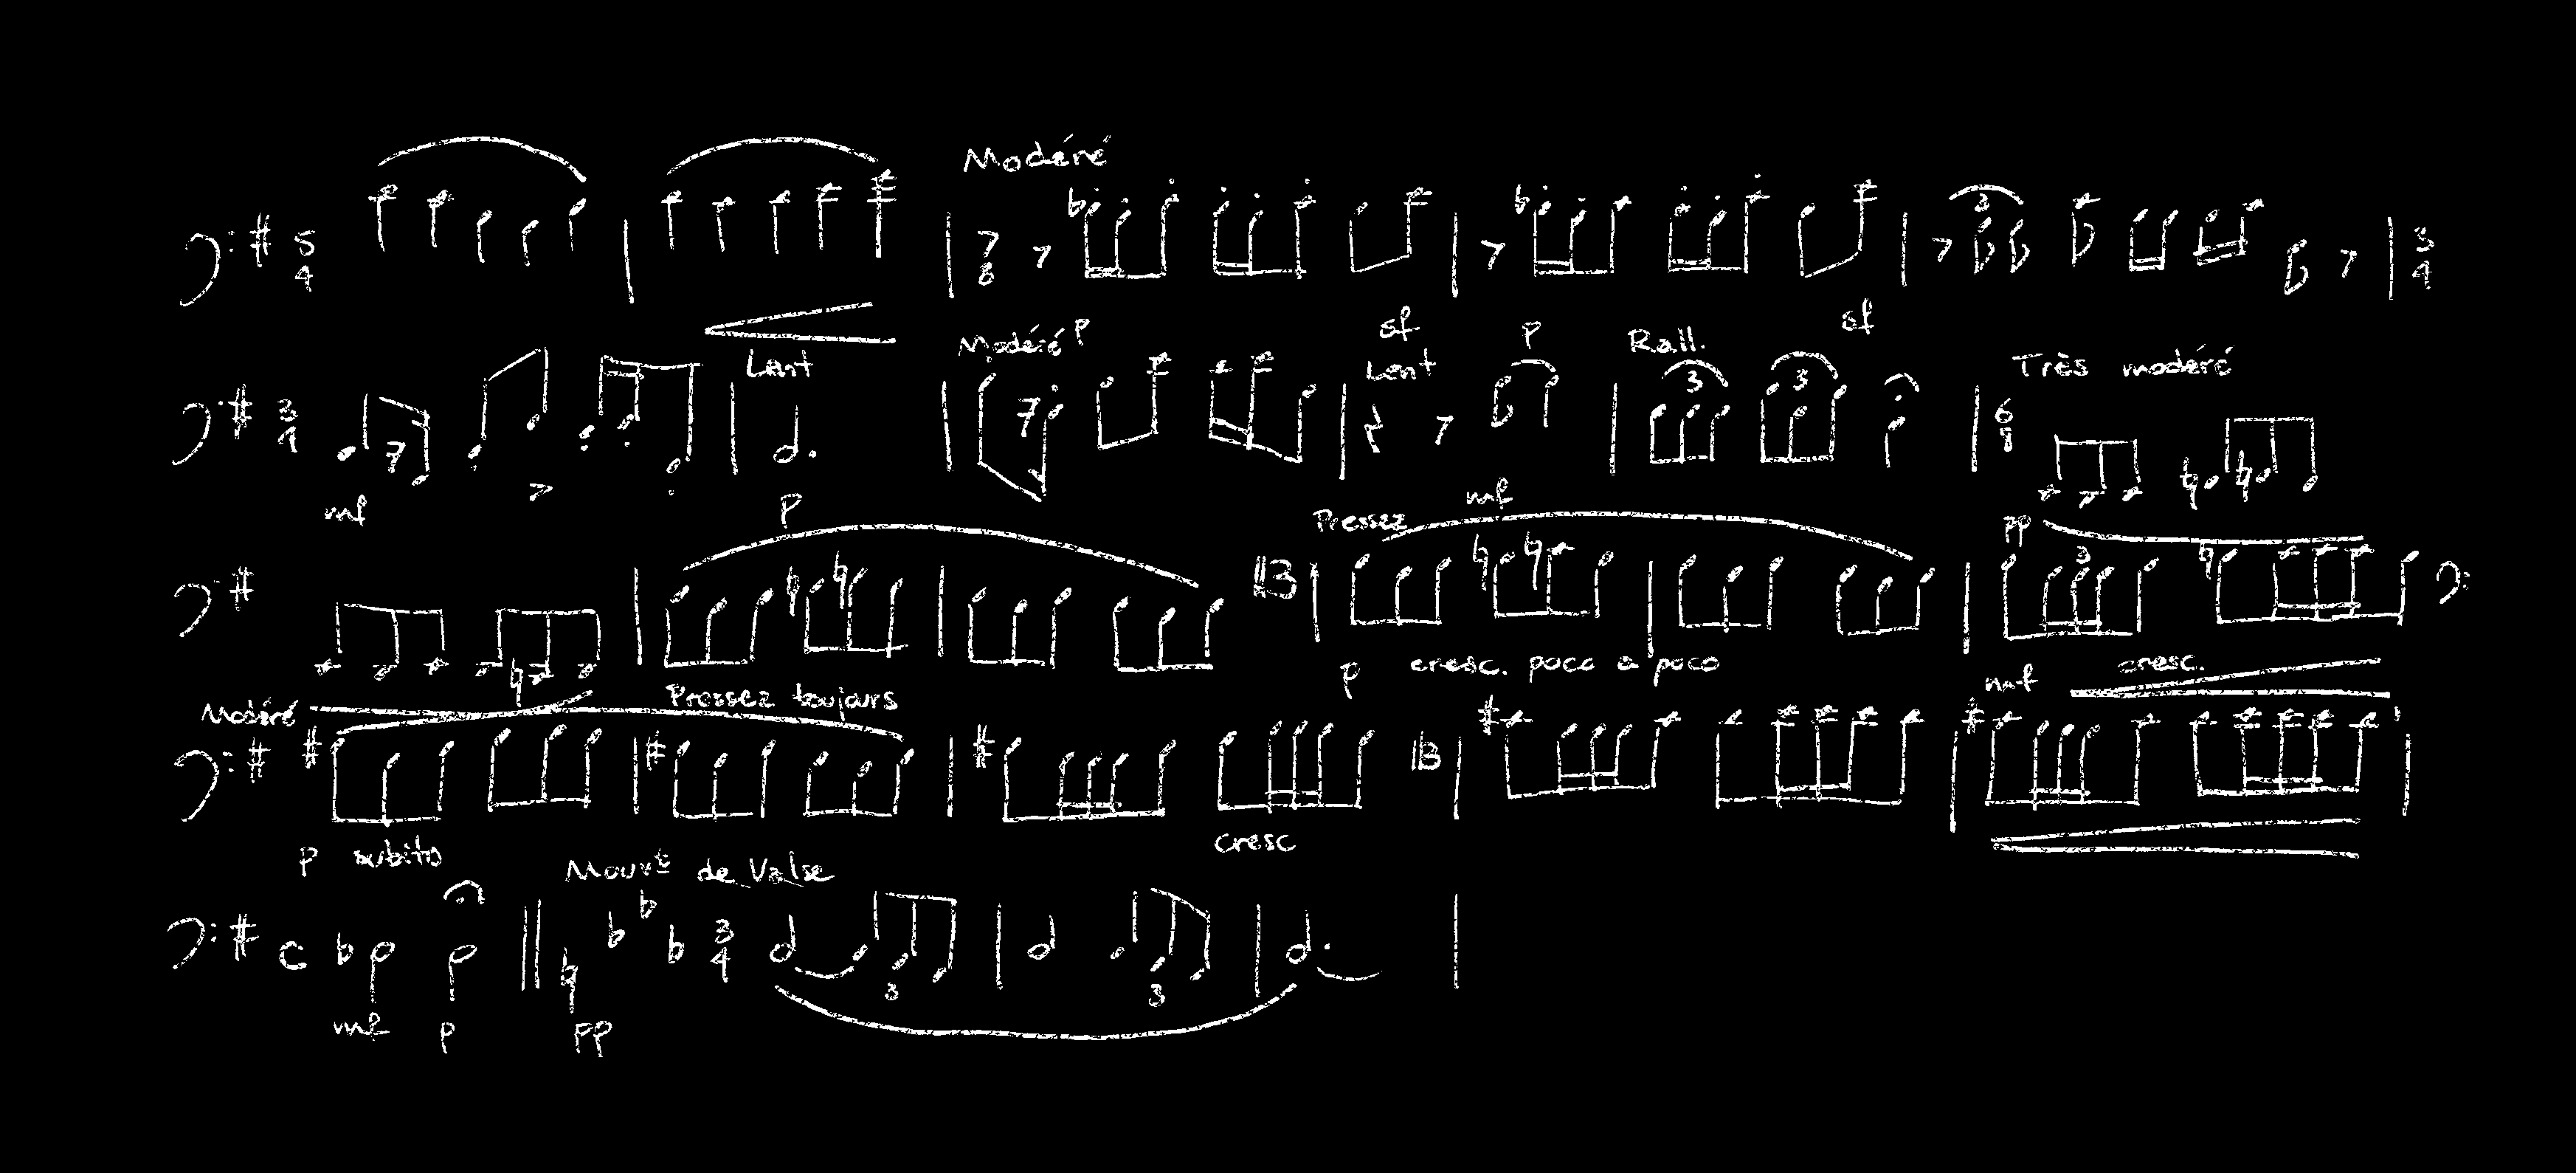 Modéré
5 4 7 8 3 3 4
p sf p sf
Lent Modéré Lent Rall. Très modéré
3 4 3 3 6 8
mf p mf pp
Pressez
3
p cresc. poco a poco mf cresc.
Modéré Pressez toujours
p subito cresc
Mouvt de Valse
C 3 4 3 3
mf p pp